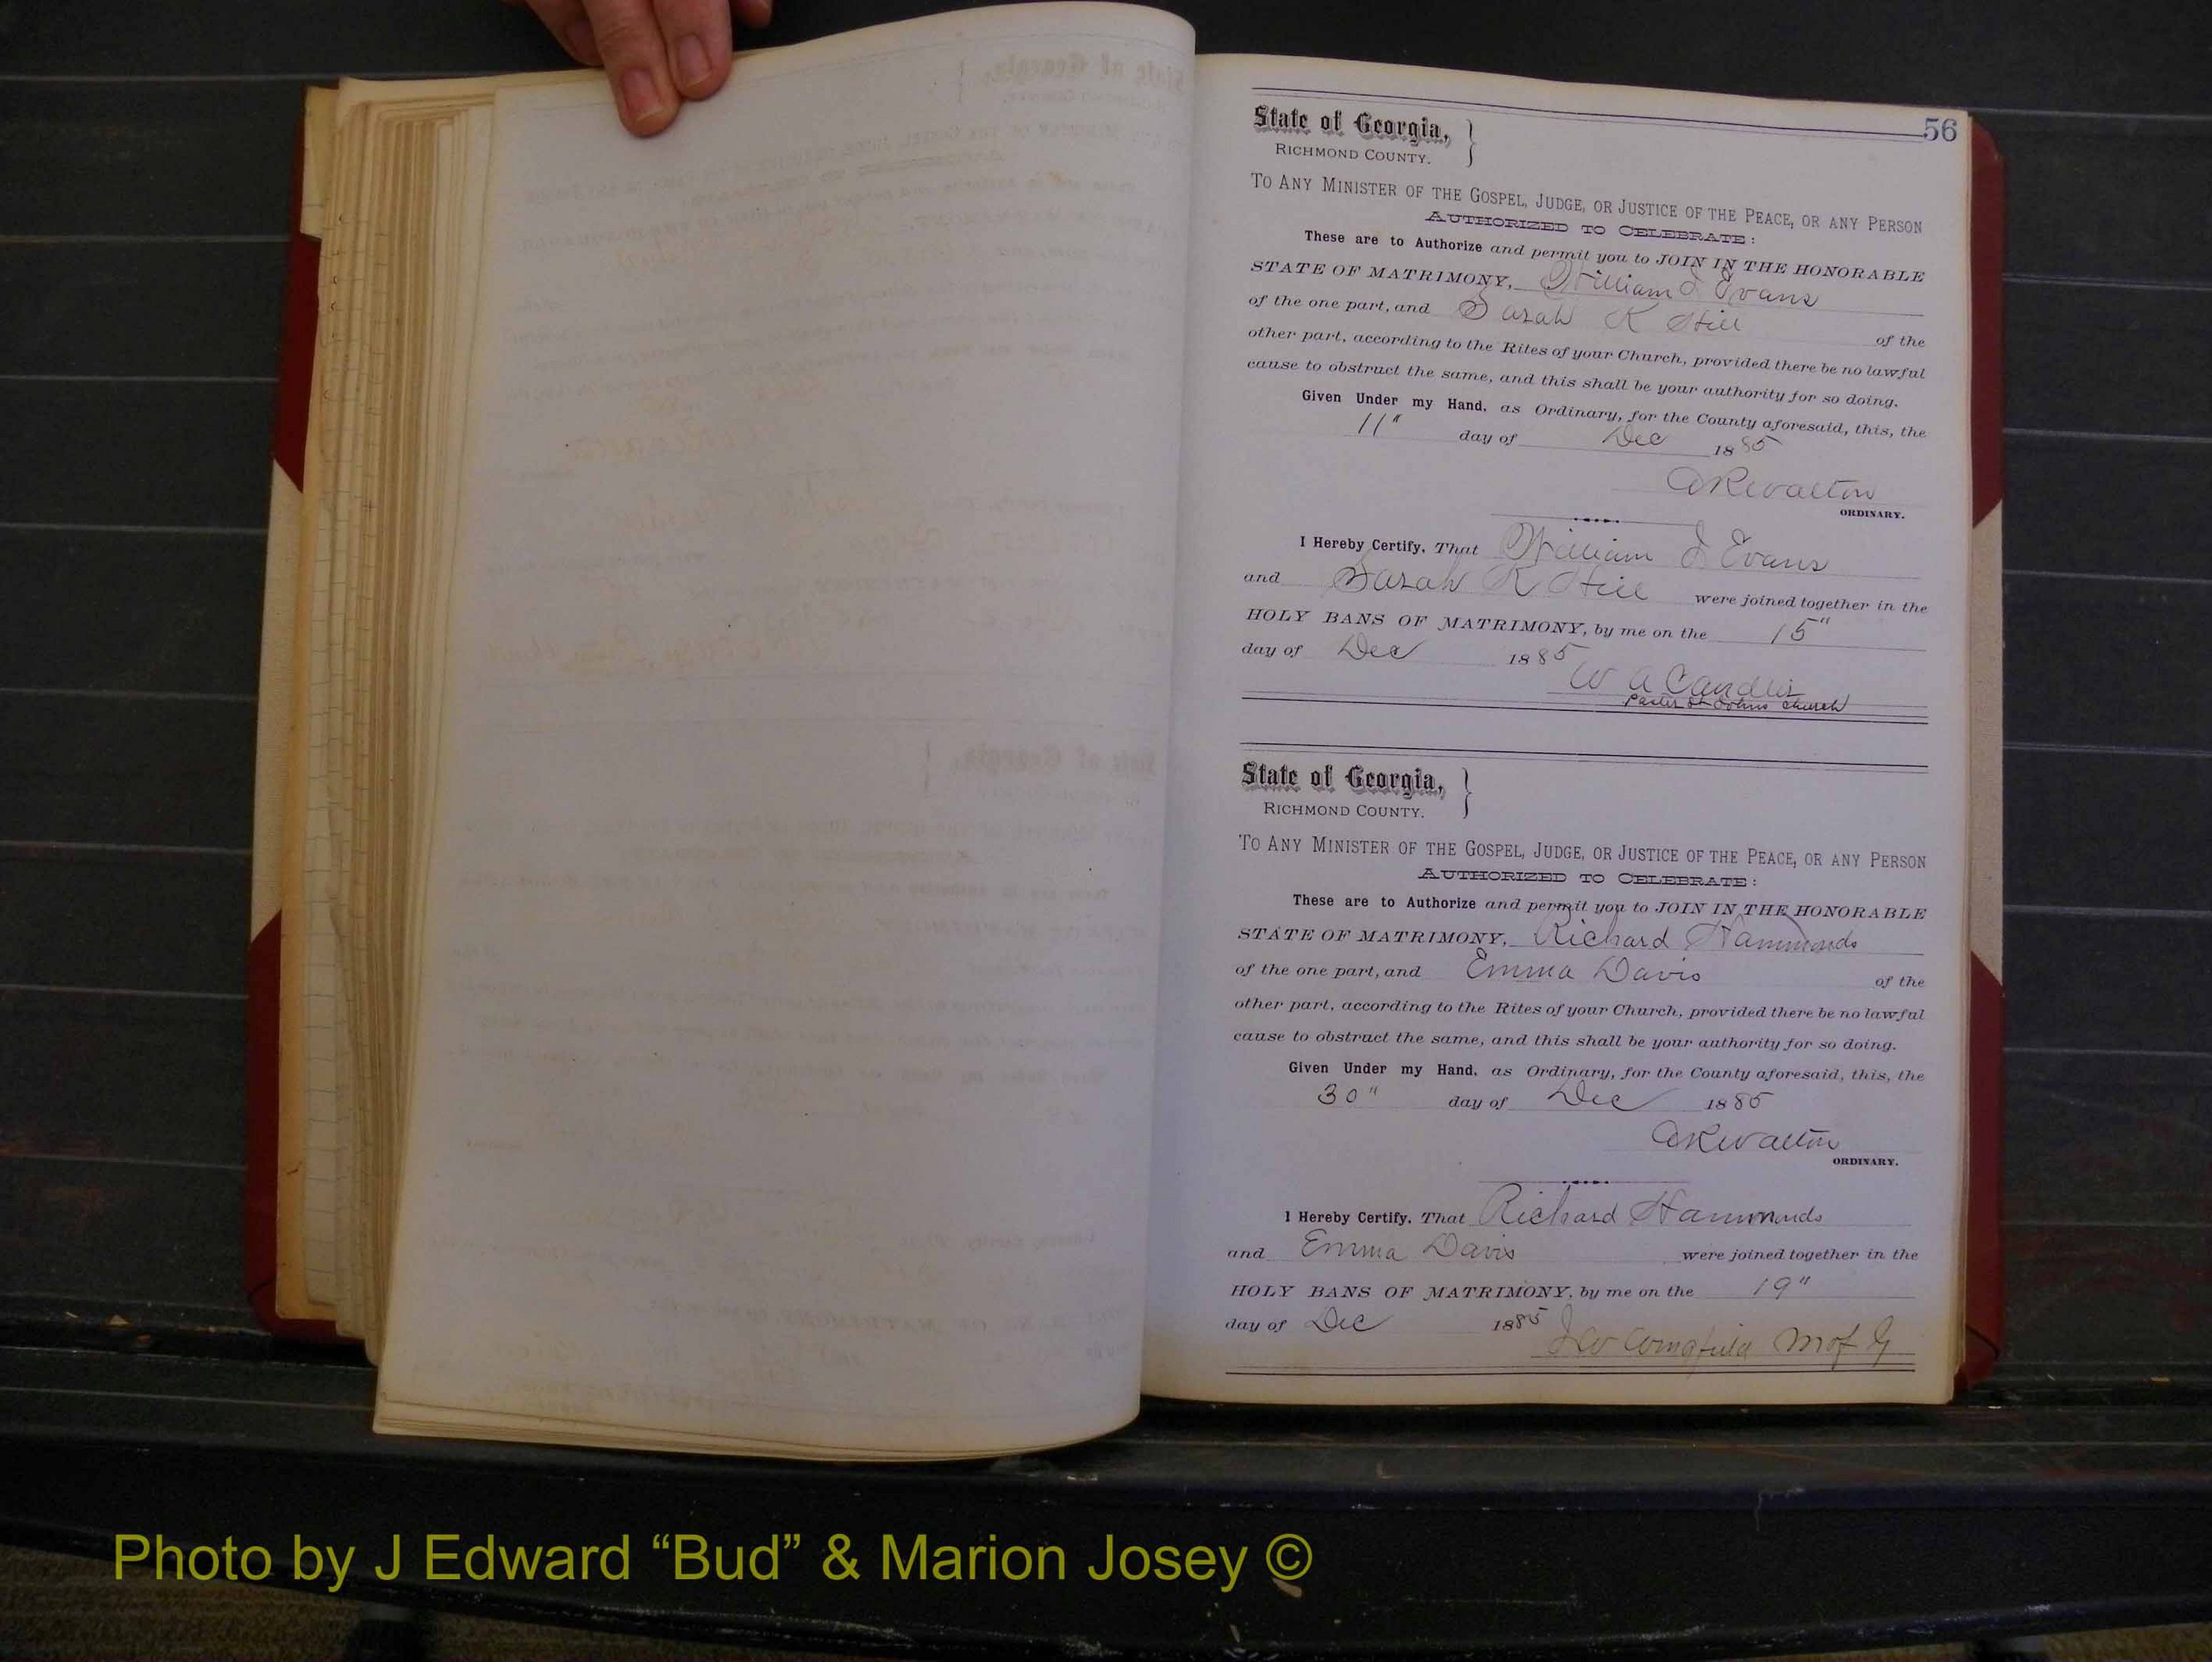 56
State of Georgia,
RICHMOND COUNTY.
TO ANY MINISTER OF THE GOSPEL, JUDGE, OR JUSTICE OF THE PEACE, OR ANY PERSON
AUTHORIZED TO CELEBRATE:
These are to Authorize and permit you to JOIN IN THE HONORABLE
STATE OF MATRIMONY, William J Evans
of the one part, and Sarah K Hill of the
other part, according to the Rites of your Church, provided there be no lawful
cause to obstruct the same, and this shall be your authority for so doing.
Given Under my Hand, as Ordinary, for the County aforesaid, this, the
11" day of Dec 1885
ORDINARY.
I Hereby Certify, That William J Evans
and Sarah K Hill were joined together in the
HOLY BANS OF MATRIMONY, by me on the 15"
day of Dec 1885
W A Candler
Pastor St Johns Church
State of Georgia,
RICHMOND COUNTY.
TO ANY MINISTER OF THE GOSPEL, JUDGE, OR JUSTICE OF THE PEACE, OR ANY PERSON
AUTHORIZED TO CELEBRATE:
These are to Authorize and permit you to JOIN IN THE HONORABLE
STATE OF MATRIMONY, Richard Hammonds
of the one part, and Emma Davis of the
other part, according to the Rites of your Church, provided there be no lawful
cause to obstruct the same, and this shall be your authority for so doing.
Given Under my Hand, as Ordinary, for the County aforesaid, this, the
30" day of Dec 1885
ORDINARY.
I Hereby Certify, That Richard Hammonds
and Emma Davis were joined together in the
HOLY BANS OF MATRIMONY, by me on the 19"
day of Dec 1885
Wingfield M of G
Photo by J Edward “Bud” & Marion Josey ©